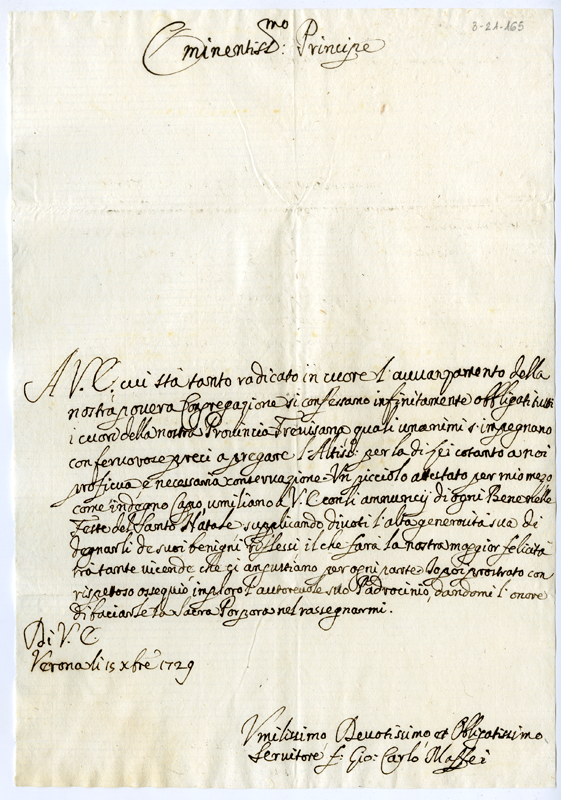 3-21-165
Eminentiss:mo Principe
A V. E. cui stà tanto radicato in cuore l'avvanzamento della
nostra povera Congregazione si confessano infinitamente obbligati tutti
i cuori della nostra Provincia Trevisana quali unanimi s'impegnano
con fervorose preci a pregare l'Altiss:o per la di lei cotanto a noi
proficua e necessaria conservazione. Un picciolo attestato per mio mezo
come indegno Capo, umiliano a V. E. con li annuncij di ogni Bene nelle
Feste del Santo Natale supplicando divoti l'alta generosità sua di
degnarli de suoi benigni riflessi il che farà la nostra maggior felicità
trà tante vicende che ci angustiano per ogni parte. Io poi prostrato con
rispettoso ossequio imploro l'autorevole suo Padrocinio, dandomi l'onore
di baciarle la Sacra Porpora nel rassegnarmi.
Di V. E.
Verona li 15 xbre 1729
Umilissimo Devotissimo et Obbligatissimo
Servitore f: Gio: Carlo Maffei